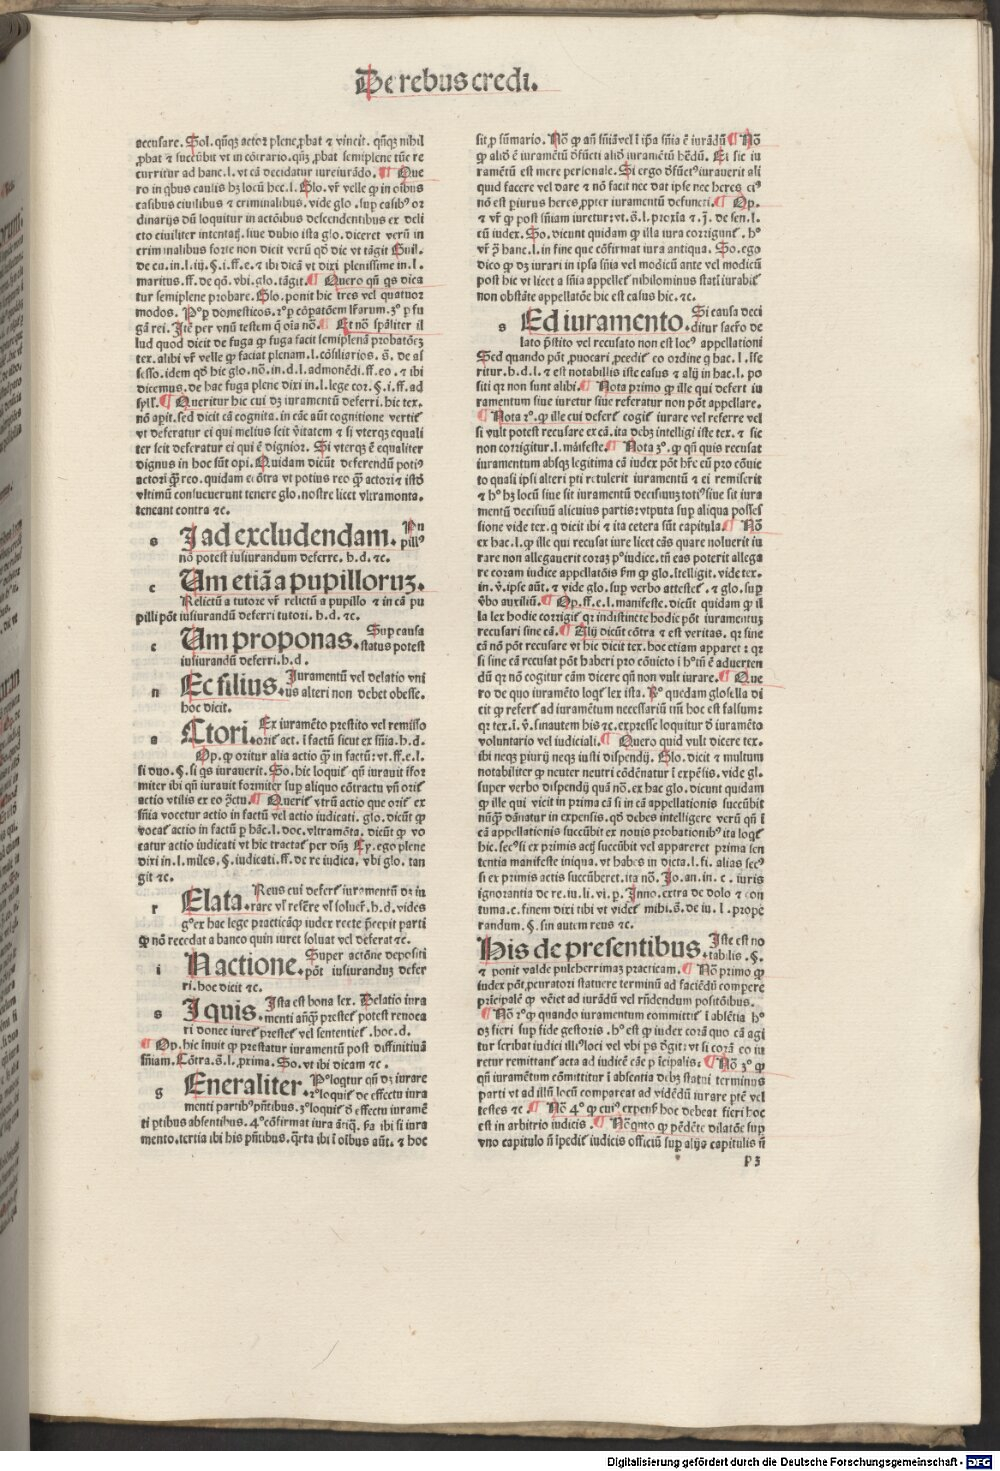 De rebus credi.
accusare. Sol. qñqꝫ actor plene ꝓbat ⁊ vincit. qñqꝫ nihil
ꝓbat ⁊ succũbit vt in cõtrario. qñqꝫ ꝓbat semiplene tũc re
curritur ad hanc. l. vt cã decidatur iureiurãdo. ¶ Que
ro in qbus causis hꝫ locũ hec. l. Glo. vr̃ velle ꝙ in oĩbus
casibus ciuilibus ⁊ criminalibus. vide glo. sup casibꝰ or
dinarijs dũ loquitur in actõibus descendentibus ex deli
cto ciuiliter intentat?. siue dubio ista glo. diceret verũ in
criminalibus forte non dicit verũ qđ dic vt tãgit Guil.
de cu. in. l. iij. §. i. ff. e. ⁊ ibi dicã vt dixi plenissime in. l.
maritus. ff. de qõ. vbi. glo. tãgit. ¶ Quero qñ qs dica
tur semiplene probare. Glo. ponit hic tres vel quatuor
modos. Pºp domesticos. 2º p cõpatõem lr̃arum. 3º p fu
gã rei. Jtẽ per vnũ testem q̃ oĩa nõ. ¶ Et nõ spãliter il
lud quod dicit de fuga ꝙ fuga facit semiplenã probatõeꝫ
tex. alibi vr̃ velle ꝙ faciat plenam. l. cõsiliarios. s̃. de as
sesso. idem qđ hic glo. nõ. in. d. l. admonẽdi. ff. eo. ⁊ ibi
dicemus. de hac fuga plene dixi in. l. lege cor. §. i. ff. ad
syll. ¶ Queritur hic cui dꝫ iuramentũ deferri. hic tex.
nõ apit. sed dicit cã cognita. in cãe aũt cognitione vertit
vt deferatur ei qui melius scit ṽitatem ⁊ si vterqꝫ equali
ter scit deferatur ei qui ẽ dignior. Si vterqꝫ ẽ equaliter
dignus in hoc sũt opi. Quidam dicũt deferendũ potiꝰ
actori q̃ reo. quidam ecõtra vt potius reo q̃ actori ⁊ istđ
vltimũ consueuerunt tenere glo. nostre licet vltramonta.
teneant contra ⁊c.
s Jad excludendam. Pu
pillꝰ
nõ potest iusiurandum deferre. h. d. ⁊c.
c Um etiã a pupilloruꝫ.
Relictũ a tutore vr̃ relictũ a pupillo ⁊ in cã pu
pilli põt iusiurandũ deferri tutori. h. d. ⁊c.
c Um proponas. Sup causa
status potest
iusiurandũ deferri. h. d.
n Ec filius. Juramentũ vel delatio vni
us alteri non debet obesse.
hoc dicit.
a Ctori. Ex iuramẽto prestito vel remisso
orit act. ĩ factũ sicut ex sñia. h. d.
Op. ꝙ oritur alia actio q̃ in factũ: vt. ff. e. l.
si duo. §. si qs iurauerit. So. hic loquit qñ iurauit ĩfor
miter ibi qñ iurauit formiter sup aliquo cõtractu vñ orit
actio vtilis ex eo ꝯctu. ¶ Querit vtrũ actio que orit ex
sñia vocetur actio in factũ vel actio iudicati. glo. dicũt ꝙ
vocat actio in factũ p hãc. l. doc. vltramõta. dicũt ꝙ vo
catur actio iudicati vt hic tractat per dñꝫ Cy. ego plene
dixi in. l. miles. §. iudicati. ff. de re iudica. vbi glo. tan
git ⁊c.
r Elata. Reus cui defert iuramentũ dꝫ iu
rare vl̃ resẽre vl̃ soluer̃. h. d. vides
gºex hac lege practicãqꝫ iudex recte p̃cepit parti
ꝙ nõ recedat a banco quin iuret soluat vel deferat ⁊c.
i N actione. Super actõne depositi
põt iusiuranduꝫ defer
ri. hoc dicit ⁊c.
s J quis. Jsta est bona lex. Delatio iura
menti añqꝫ prestet potest reuoca
ri donec iuret prestet vel sententiet. hoc. d.
¶ Op. hic ĩnuit ꝙ prestatur iuramentũ post diffinitiuã
sñiam. Cõtra. s̃. l. ꝓxima. So. vt ibi dicam ⁊c.
g Eneraliter. Pºloqtur qñ dꝫ iurare
2ºloquit de effectu iura
menti partibꝰ pñtibus. 3ºloquit đ effectu iuramẽ
ti ptibus absentibus. 4ºcõfirmat iura ãtiq̃. ẜa ibi si iura
mento. tertia ibi his pñtibus. q̃rta ibi ĩ oĩbus aũt. ⁊ hoc
sit ꝓ sũmario. Nõ ꝙ añ sñiã vel ĩ ip̃a sñia ẽ iurãdũ ¶ Nõ
ꝙ aliđ ẽ iuramẽtũ đfũcti aliđ iuramẽtũ hẽdũ. Et sic iu
ramẽtũ est mere personale. Si ergo đfũctꝰ iurauerit ali
quid facere vel dare ⁊ nõ facit nec dat ipse nec heres ciꝰ
nõ est piurus heres ꝓpter iuramentũ defuncti. ¶ Op.
⁊ vr̃ ꝙ post sñiam iuretur: vt. s̃. l. proxĩa ⁊. j̃. de sen. l.
cũ iudex. So. dicunt quidam ꝙ illa iura corrigunt. hº
vr̃ ꝑ hanc. l. in fine que cõfirmat iura antiqua. So. ego
dico ꝙ dꝫ iurari in ipsa sñia vel modicũ ante vel modicũ
post hic vt licet a sñia appellet nihilominus statĩ iurabit
non obstãte appellatõe hic est casus hic. ⁊c.
s Ed iuramento. Si causa deci
ditur sacr̃o de
lato p̃stito vel recusato non est locꝰ appellationi
Sed quando põt ꝓuocari ꝓcedit eo ordine q hac. l. ĩse
ritur. h. d. l. ⁊ est notabilis iste casus ⁊ alij in hac. l. po
siti qꝫ non sunt alibi. ¶ Nota primo ꝙ ille qui defert iu
ramentum siue iuretur siue referatur non põt appellare.
¶ Nota 2º. ꝙ ille cui defert cogit iurare vel referre vel
si vult potest recusare ex cã. ita debꝫ intelligi iste tex. ⁊ sic
non corrigitur. l. mãifeste. ¶ Nota 3º. ꝙ qñ quis recusat
iuramentum absqꝫ legitima cã iudex põt hr̃e cũ pro cõuic
to quasi ipsi alteri pti retulerit iuramentũ ⁊ ei remiserit
⁊ hº hꝫ locũ siue sit iuramentũ decisiuuꝫ totiꝰ siue sit iura
mentũ decisiuũ alicuius partis: vtputa sup aliqua posses
sione vide tex. q dicit ibi ⁊ ita cetera sũt capitula. ¶ Nõ
ex hac. l. ꝙ ille qui recusat iure licet cãs quare noluerit iu
rare non allegauerit coraꝫ pº iudice. tñ eas poterit allega
re coram iudice appellatõis ẜm ꝙ glo. ĩtelligit. vide tex.
in. ṽ. ipse aũt. ⁊ vide glo. sup verbo attestet. ⁊ glo. sup
ṽbo auxiliũ. ¶ Op. ff. e. l. manifeste. dicũt quidam ꝙ il
la lex hodie corrigit qꝫ indistincte hodie põt iuramentuꝫ
recusari sine cã. ¶ Alij dicũt cõtra ⁊ est veritas. qꝫ sine
cã nõ põt recusare vt hic dicit tex. hoc etiam apparet: qꝫ
si sine cã recusat põt haberi pro cõuicto ĩ hºtñ ẽ aduerten
dũ qꝫ nõ cogitur cãm dicere qñ non vult iurare. ¶ Que
ro de quo iuramẽto loqt lex ista. Rº quedam glosella di
cit ꝙ refert ad iuramẽtũ necessariũ nm̃ hoc est falsum:
qꝫ tex. ĩ. ṽ. sinautem his ⁊c. expresse loquitur đ iuramẽto
voluntario vel iudiciali. ¶ Quero quid vult dicere tex.
ibi neqꝫ piurij neqꝫ iusti dispendij. Glo. dicit ⁊ multum
notabiliter ꝙ neuter neutri cõdẽnatur ĩ expẽsis. vide gl.
super verbo dispendij quã nõ. ex hac glo. dicunt quidam
ꝙ ille qui vicit in prima cã si in cã appellationis succũbit
nũqꝫ dãnatur in expensis. qđ debes intelligere verũ qñ ĩ
cã appellationis succũbit ex nouis probationibꝰ ita loqt
hic. secꝰ si ex primis actꝫ succũbit vel appareret prima sen
tentia manifeste iniqua. vt habes in dicta. l. fi. alias secꝰ
si ex primis actis succũberet. ita nõ. Jo. an. in. c. iuris
ignorantia de re. iu. li. vi. p. Jnno. extra de dolo ⁊ con
tuma. c. finem dixi tibi vt videt mihi. s̃. de iu. l. prope
randum. §. sin autem reus ⁊c.
His de presentibus. Jste est no
tabilis. §.
⁊ ponit valde pulcherrimaꝫ practicam. ¶ Nõ primo ꝙ
iudex põt ꝓcuratori statuere terminũ ad faciẽdũ compere
pricipalẽ ꝙ vẽiet ad iurãdũ vel rñdendum positõibus.
¶ Nõ 2ºꝙ quando iuramentum committit ĩ absẽtia hº
dꝫ fieri sup fide gestoris. hº est ꝙ iudex corã quo cã agi
tur scribat iudici illiꝰloci vel vbi ps đgit: vt si corã eo iu
retur remittant acta ad iudicẽ cãe p ĩcipalis: ¶ Nõ 3º ꝙ
qñ iuramentum cõmittitur ĩ absentia debꝫ statui terminus
parti vt ad illũ locũ compareat ad vidẽdũ iurare ptẽ vel
testes ⁊c. ¶ Nõ 4º ꝙ cuiꝰ expenẜ hoc debeat fieri hoc
est in arbitrio iudicis. ¶ Nõ qnto ꝙ pẽdẽte dilatõe sup
vno capitulo ñ ĩpedit iudicis officiũ sup alijs capitulis ñ
p 3
Digitalisierung gefördert durch die Deutsche Forschungsgemeinschaft - DFG